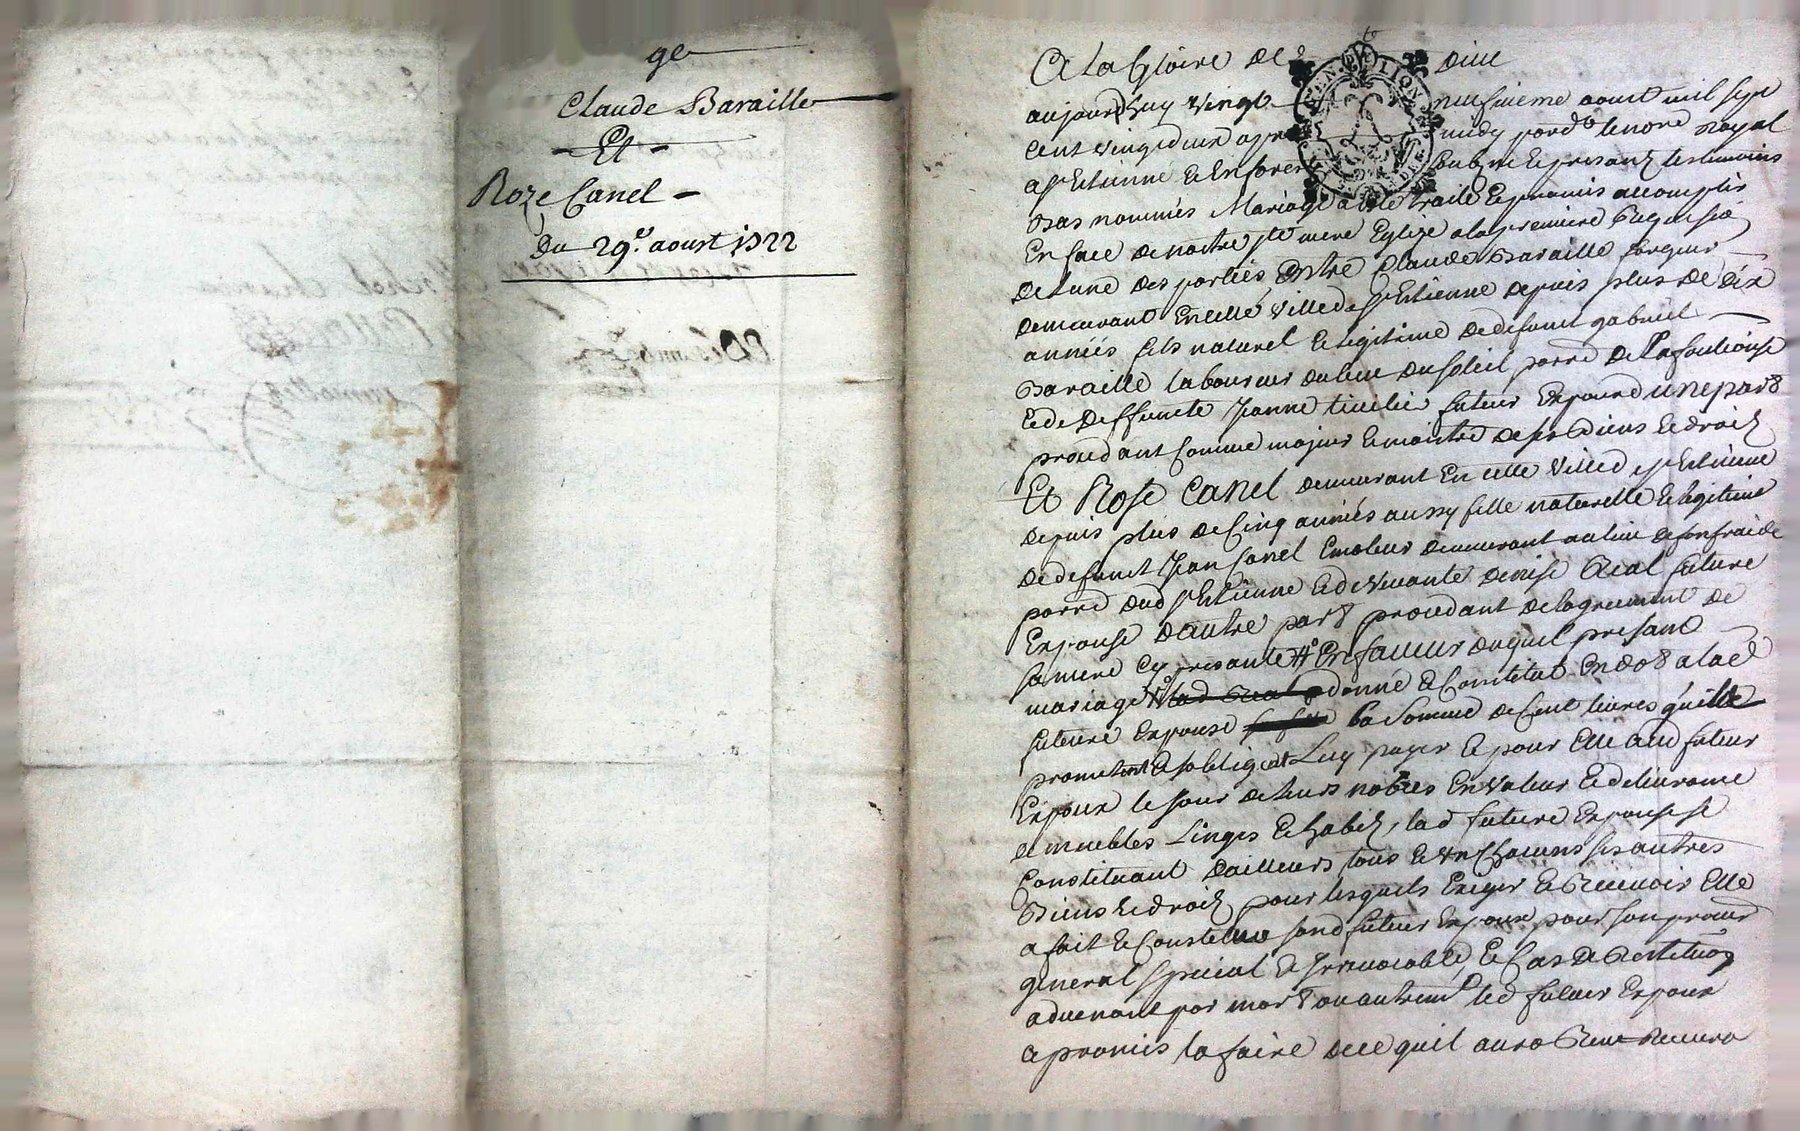 ge
Claude Baraille
Et
Roze Canel
Du 29e. aoust 1722
A La Gloire de Dieu
aujourdhuy vingt neufvieme aoust mil sept
cent vingt deux apres midy pard. le no.re Royal
a st Etienne en forez et presantz les temoins
bas nommés Mariage a ete traité et promis accomplir
En face de nostre ste mere Eglize a la premiere Requisi.
de L'une des parties, Entre Claude Baraille forgeur
demeurant En cette ville de st Etienne depuis plus de dix
années fils naturel et legitime de defunct gabriel
Baraille laboureur du lieu du soleil parre de La fouliouse
et de deffuncte Jeanne futeur Expoux d'une part
procedant comme majeur et maistre de ses Biens et droitz
Et Rose Canel demeurant En cette ville de st Etienne
depuis plus de Cinq années aussy fille naturelle et legitime
de defunct Jean Canel Emoleur demeurant au lieu de fonfraide
parre dud st Etienne et de vivante denise Real future
Expouse d'autre part procedant de lagreement de
sa mere cy presante # En faveur duquel presant
mariage lad Real donne et Constitue En dot a lad
future Expouse la Somme de Cent livres qu'elle
promettent et s'obligent Luy payer et pour Elle aud futeur
Expoux le jour de leurs nobces En valeur
et meubles Linges et habitz, lad future Expouse se
Constituant d'ailleurs tous et un Chacuns ses autres
Biens et droitz pour lesquels Exiger et Recevoir Elle
a fait et Constitue sond futeur Expoux pour son procur
general special et Irrevocable, et Cas de Restitution
advenant par mort ou autremt led futeur Expoux
a promis la faire de ce qu'il aura Receu